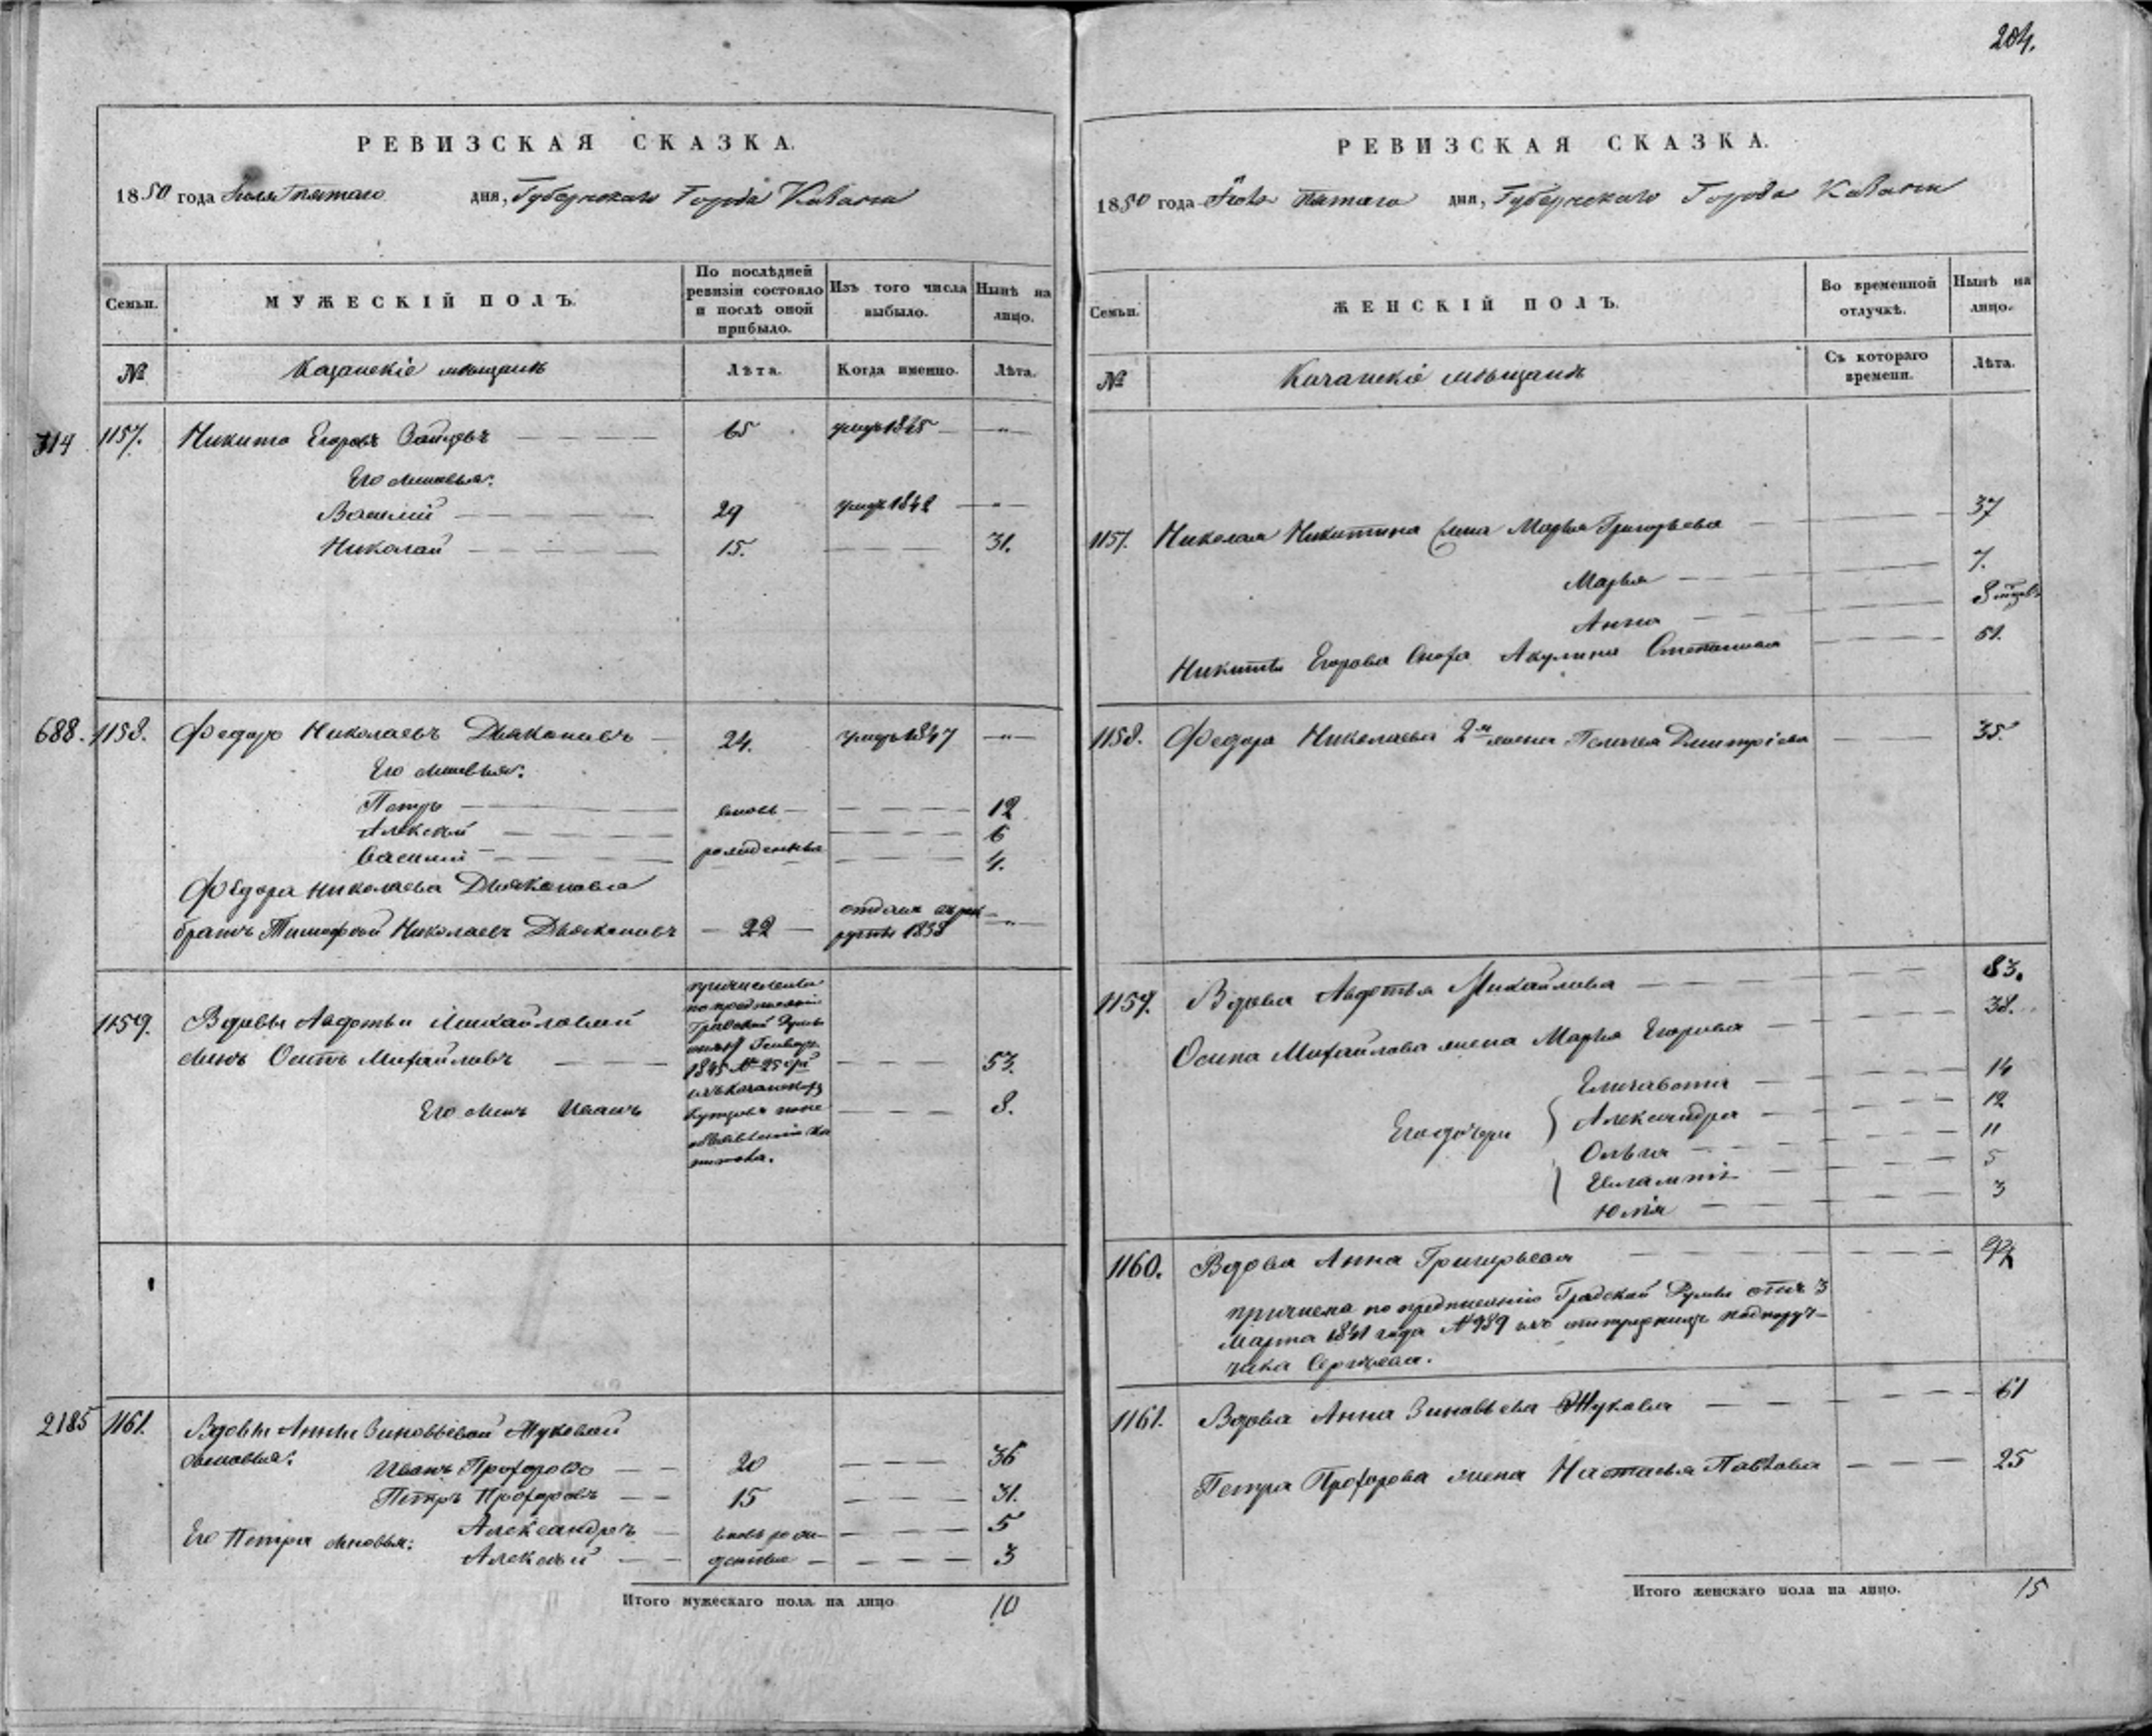 204.
РЕВИЗСКАЯ СКАЗКА.
1850 года Июля пятаго дня, Губернскаго Города Казани
Семьи.
МУЖЕСКІЙ ПОЛЪ.
По послѣдней ревизіи состояло и послѣ оной прибыло.
Изъ того числа выбыло.
Нынѣ на лицо.
№
Казанскіе мѣщане
Лѣта.
Когда именно.
Лѣта.
314 1157. Никита Егоровъ Зайцевъ 65 умеръ 1845 „
Его сыновья:
Василій 29 умеръ 1842 „
Николай 15. 31.
688. 1158. Федоръ Николаевъ Дьяконовъ 24. умеръ 1847 „
Его сыновья:
Петръ вновь 12
Алексѣй 6
Василій рожденные 4.
Федора Николаева Дьяконова
братъ Тимофей Николаевъ Дьяконовъ 22 отданъ въ рек
руты 1838 „
причислены
по предписанію
Градской Думы
1159. Вдовы Авдотьи Михайловой
сынъ Осипъ Михайловъ 53.
1845 № 25й
изъ Казанскихъ
Его сынъ Иванъ 8.
купцовъ по не
объявленію ка
питала.
2185 1161. Вдовы Анны Зиновьевой Жуковой
сыновья:
Иванъ Прохоровъ 20 36
Петръ Прохоровъ 15 31.
Его Петра сыновья: Александръ вновь рож- 5
Алексѣй денные 3
Итого мужескаго пола на лицо 10
РЕВИЗСКАЯ СКАЗКА.
1850 года Июля пятаго дня, Губернскаго Города Казани
Семьи.
ЖЕНСКІЙ ПОЛЪ.
Во временной отлучкѣ.
Нынѣ на лицо.
№
Казанскіе мѣщане
Съ котораго времени.
Лѣта.
1157. Николая Никитина жена Марья Григорьева 37
Марья 7.
Анна 8 мѣсяцевъ
Никиты Егорова сноха Акулина Степанова 51.
1158. Федора Николаева 2я жена Пелагея Дмитріева 35.
1159. Вдова Авдотья Михайлова 83.
Осипа Михайлова жена Марья Егорова 38.
Елизавета 14
Его дочери Александра 12
Ольга 11
Евлампія 5
Юлія 3
1160. Вдова Анна Григорьева
причислена по предписанію Градской Думы отъ 3
Марта 1841 года № 989 изъ отпущенницъ подпоруч-
чика Сергѣева.
1161. Вдова Анна Зиновьева Жукова 61
Петра Прохорова жена Настасья Павлова 25
Итого женскаго пола на лицо. 15